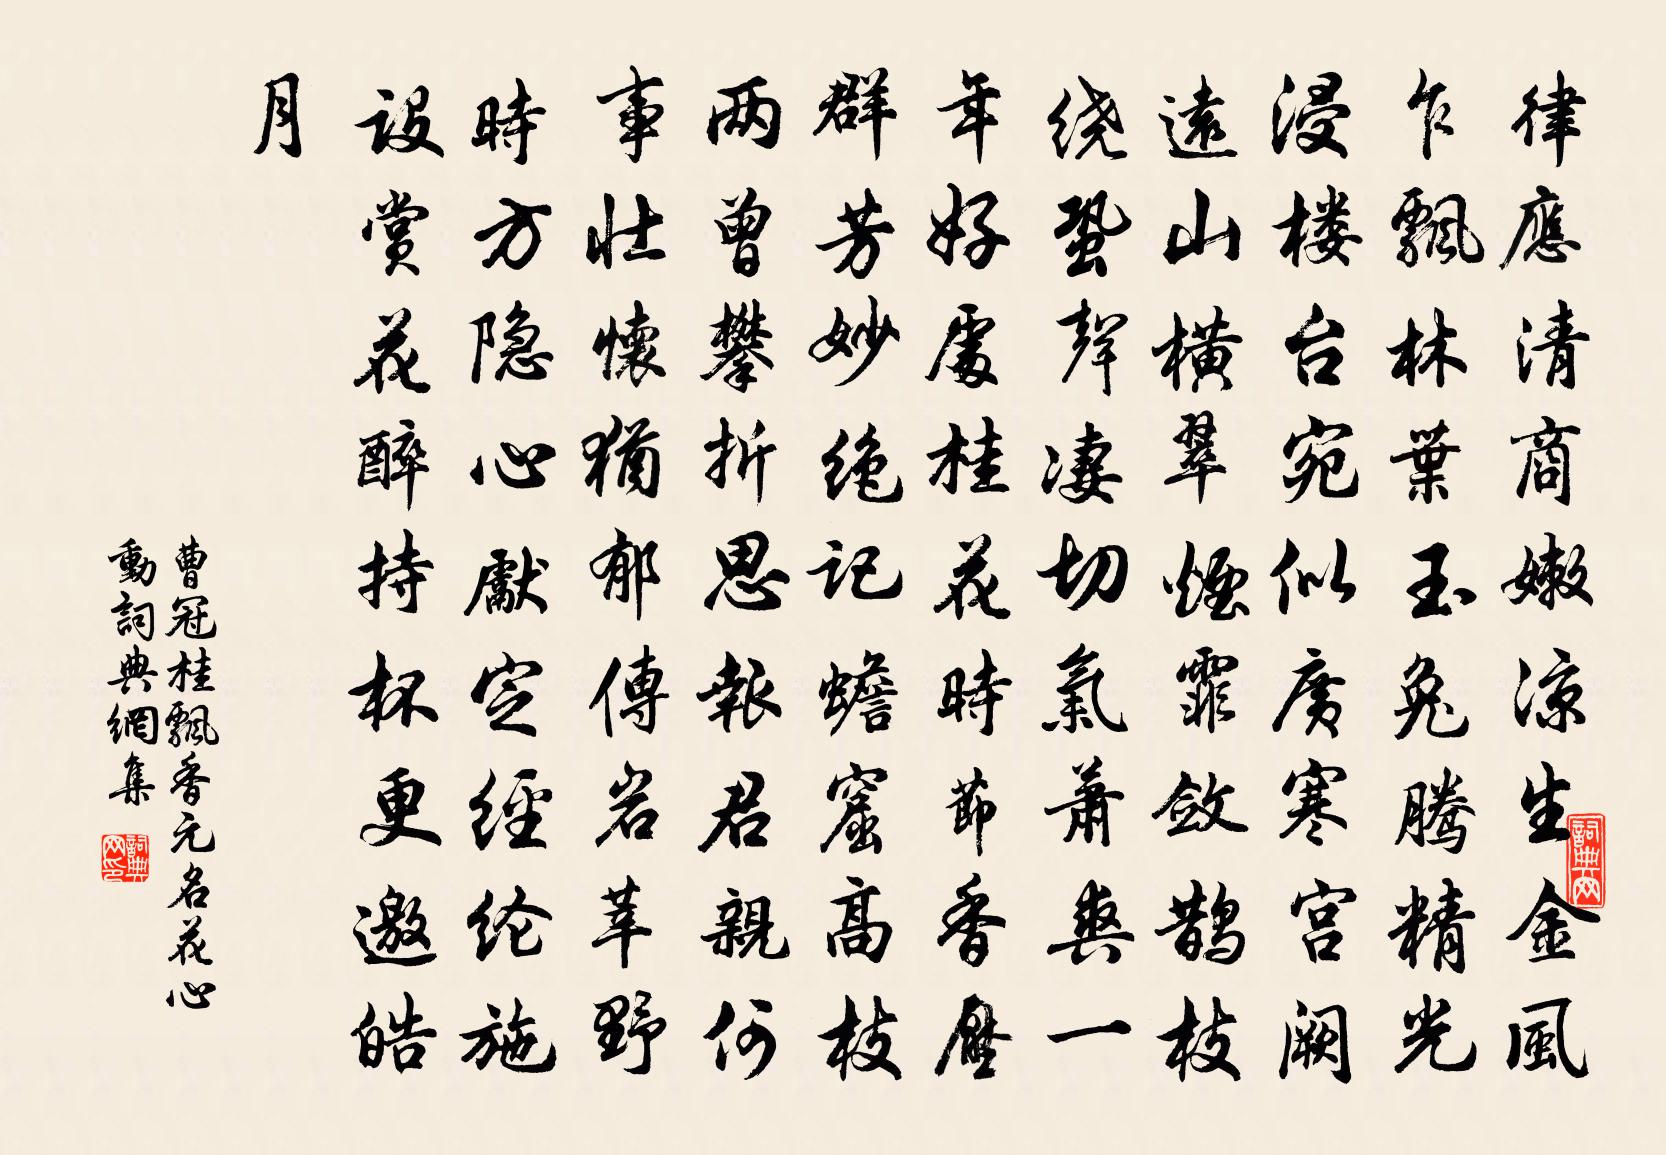 律應清商嫩涼生金風
乍飄林葉玉兔騰精光
浸楼台宛似廣寒宫阙
遠山横翠煙霏斂鹊枝
绕蛩聲凄切氣萧爽一
年好處桂花時節香壓
群芳妙绝记蟾窟高枝
两曾攀折思報君親何
事壮懷猶郁傅岩莘野
時方隐心獻定經纶施
設賞花醉持杯更邀皓
月
曹冠桂飄香元名花心
動詞典網集
詞典网
詞典网印